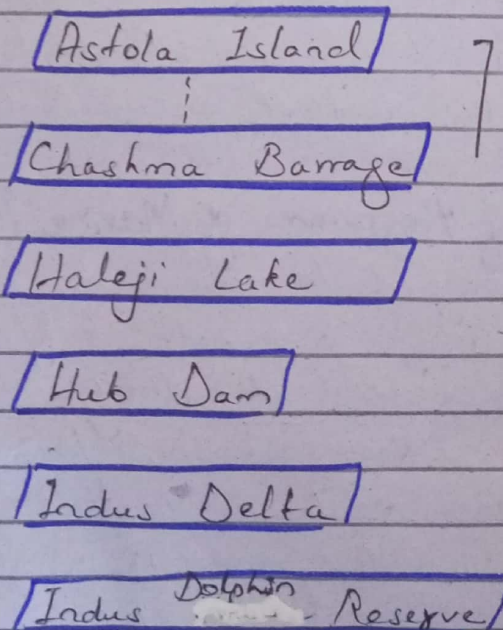 Astola Island
Chashma Barrage
Haleji Lake
Hub Dam
Indus Delta
Indus Dolphin Reserve